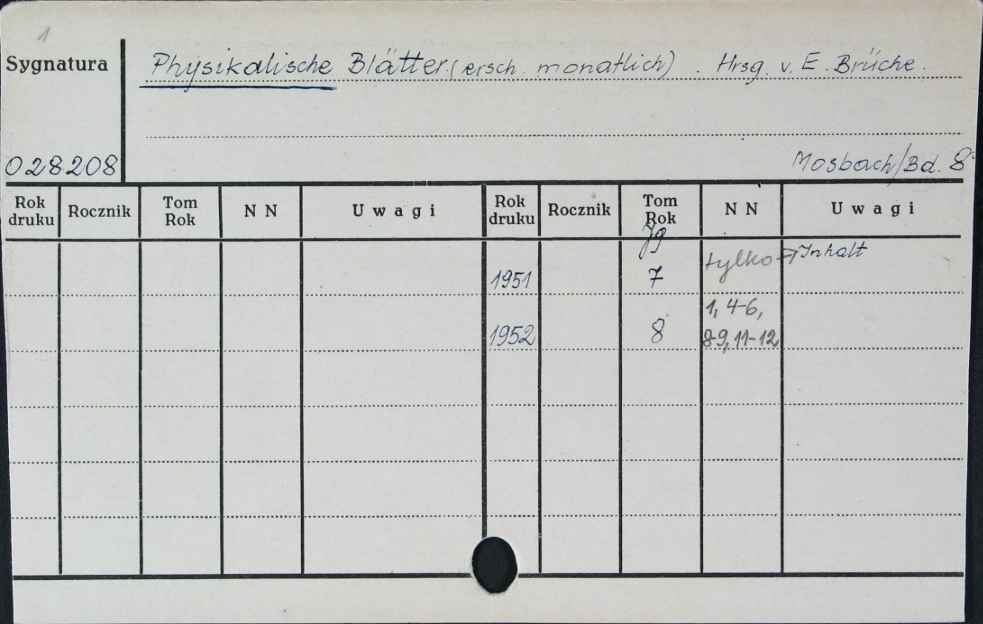 1
Sygnatura
Physikalische Blätter (ersch. monatlich). Hrsg. v. E. Brüche.
028208
Mosbach/Bd. 8°
Rok druku Rocznik Tom Rok N N Uwagi Rok druku Rocznik Tom Rok N N Uwagi
Jg
1951 7 tylko → Inhalt
1, 4-6,
1952 8 8-9, 11-12